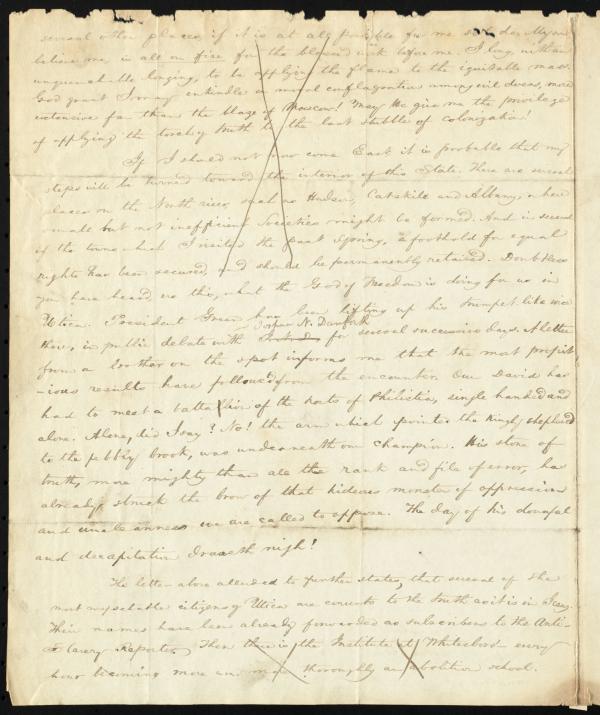 several other places, if it is at all possible for me to do so. My soul
believe me, is all on fire for the blessed work before me. I long, with an
unquenchable longing, to be applying the flame to the iniquitable mass.
God grant I may enkindle a moral conflagration among evil doers, more
extensive far than the blaze of Moscow! May He give me the privilege
of applying the torch of truth to the last stubble of colonization!
If I should not now come East it is probable that my
steps will be turned toward the interior of this State. There are several
places on the North river, such as Hudson, Catskill and Albany, where
small but not inefficient Societies might be formed. And in several
of the towns which I visited the past Spring, a foothold for equal
rights has been secured, and should be permanently retained. Doubtless
you have heard, ere this, what the God of Freedom is doing for us in
Utica. President Green has been lifting up his trumpet like voice
there, in public debate with Joshua N. Danforth for several successive days. A letter
from a brother on the spot informs me that the most propit-
-ious results have followed from the encounter. Our David has
had to meet a battalion of the hosts of Philistia, single handed and
alone. Alone, did I say? No! the arm which pointed the kingly shepherd
to the pebbly brook, was underneath our champion. His stone of
truth, more mighty than all the rank and file of error, has
already struck the brow of that hideous monster of oppression
and unrighteousness we are called to oppose. The day of his downfal
and decapitation draweth nigh!
The letter above alluded to further states, that several of the
most respectable citizens of Utica are converts to the truth as it is in
Their names have been already forwarded as subscribers to the Anti-
Slavery Reporter. Then there is the Institute at Whitesboro every
hour becoming more and more thoroughly an abolition school.